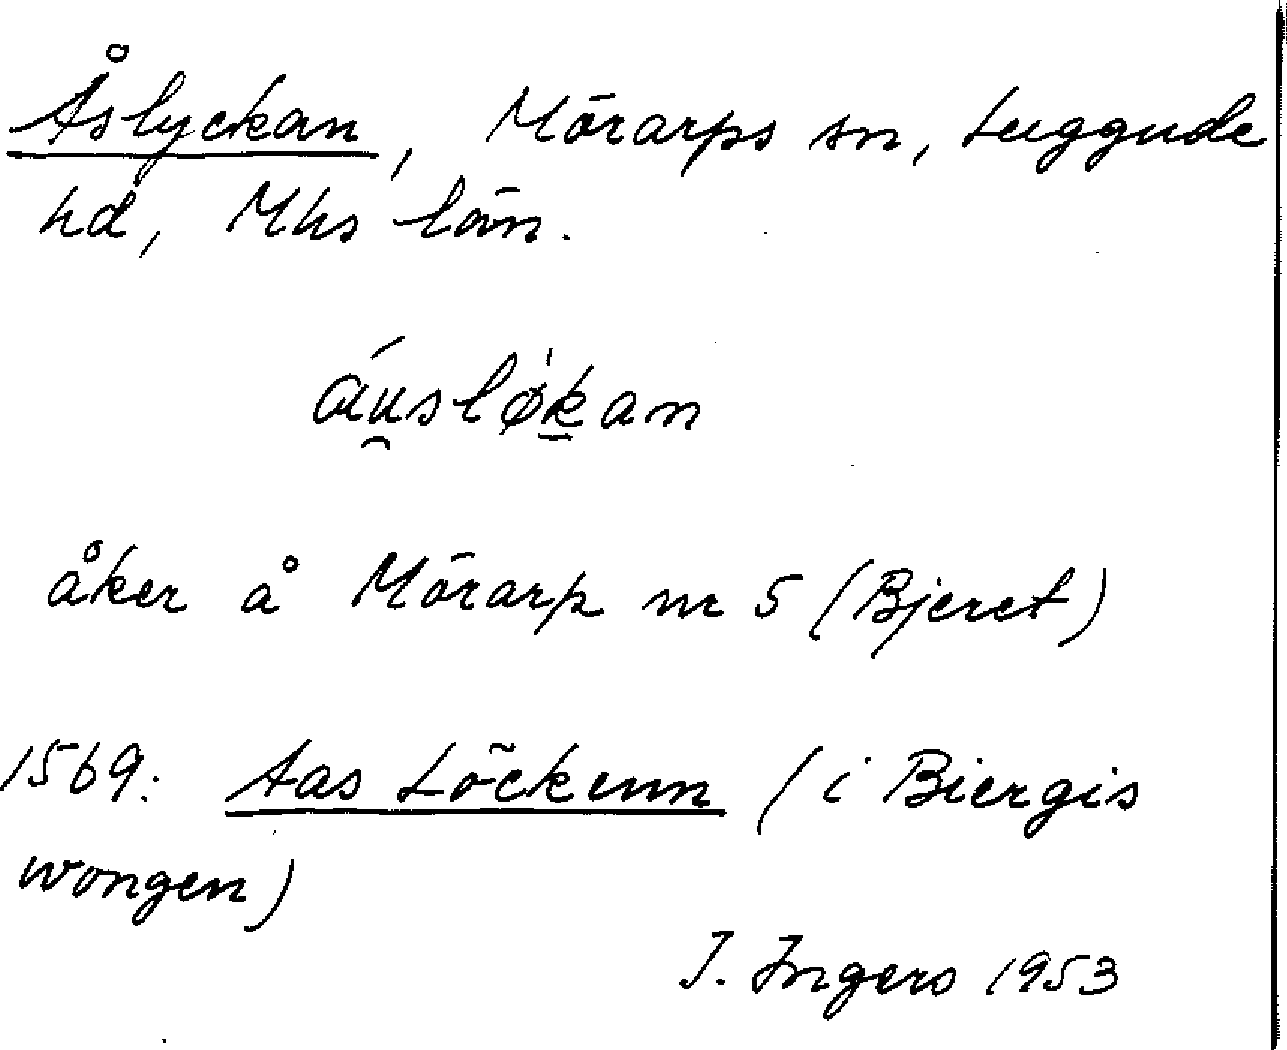 Åslyckan, Mörarps sn, Luggude
hd, Mhs län.
áu̯sløḱan
åker å Mörarp nr 5 (Bjeret)
1569: Aas Löckenn (i Biergis
wongen)
I. Ingers 1953